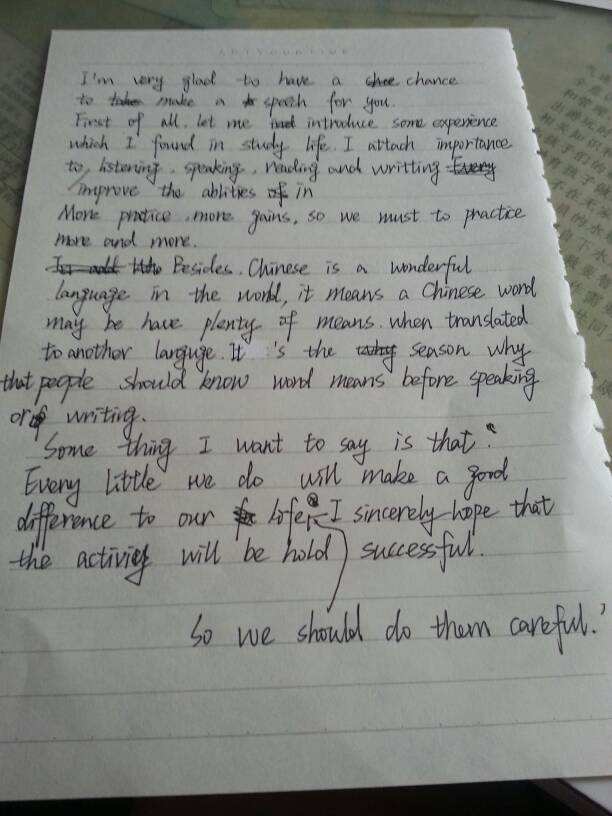 I'm very glad to have a chance
to make a speech for you.
First of all, let me introduce some experience
which I found in study life. I attach importance
to listening, speaking, reading and writting
improve the ablities in
More pratice, more gains, so we must to practice
more and more.
Besides, Chinese is a wonderful
language in the world, it means a Chinese word
may be have plenty of means. when translated
to another languge. It 's the season why
that people should know word means before speaking
or writing.
Some thing I want to say is that "
Every little we do will make a good
difference to our life. I sincerely hope that
the activiey will be hold successful.
So we should do them careful.'